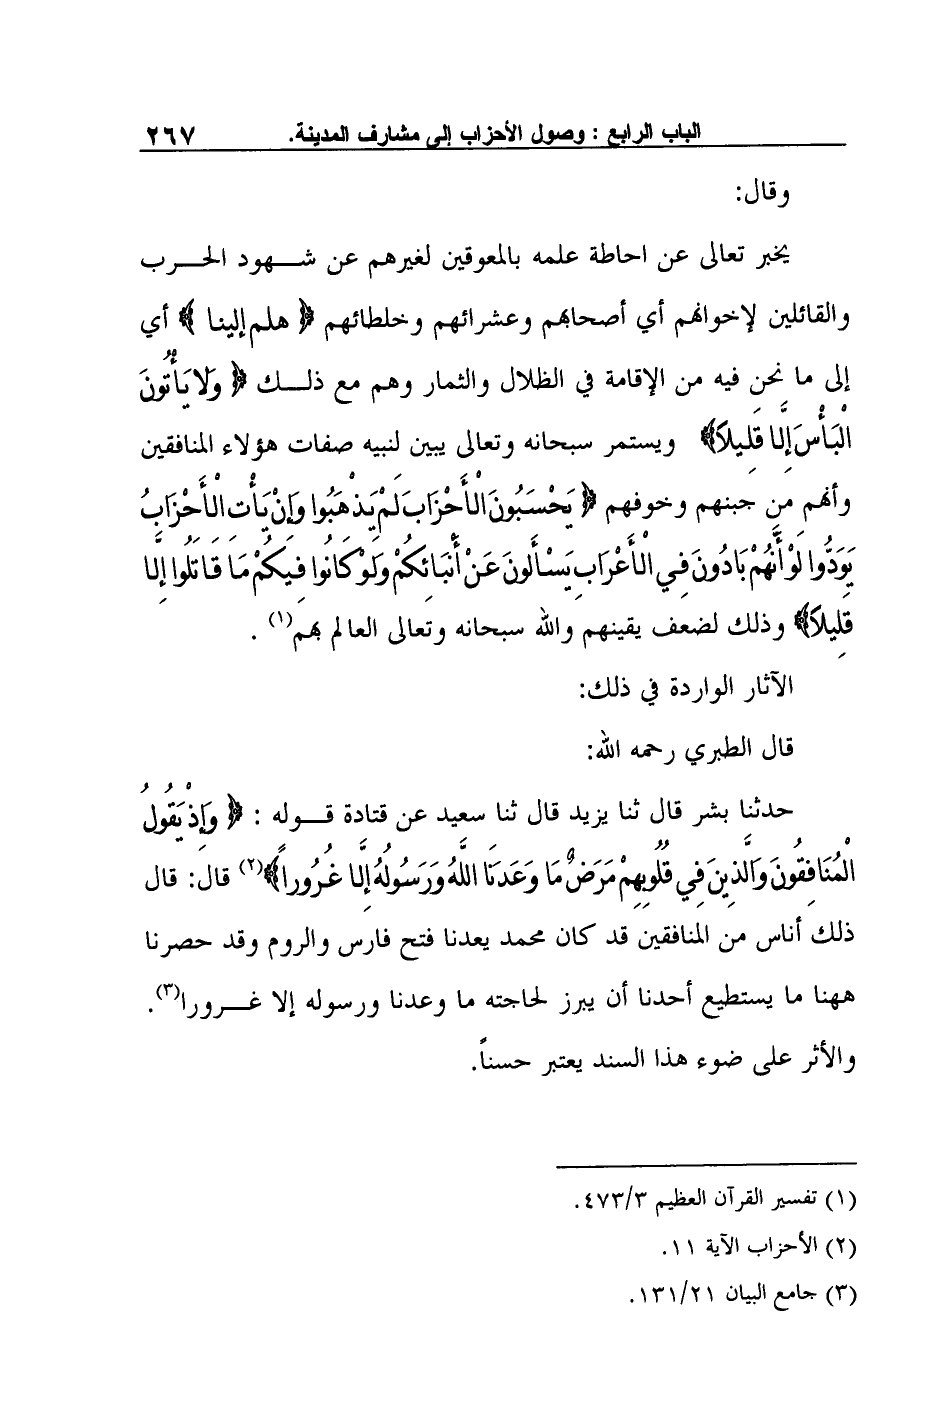 الباب الرابع : وصول الأحزاب إلى مشارف المدينة. ٢٦٧
وقال:
يخبر تعالى عن احاطة علمه بالمعوقين لغيرهم عن شهود الحرب
والقائلين لإخوانهم أي أصحابهم وعشرائهم وخلطائهم ﴿ هلم إلينا ﴾ أي
إلى ما نحن فيه من الإقامة في الظلال والثمار وهم مع ذلك ﴿ وَلَا يَأْتُونَ
الْبَأْسَ إِلَّا قَلِيلاً﴾ ويستمر سبحانه وتعالى يبين لنبيه صفات هؤلاء المنافقين
وأنهم من جبنهم وخوفهم ﴿ يَحْسَبُونَ الْأَحْزَابَ لَمْ يَذْهَبُوا وَإِنْ يَأْتِ الْأَحْزَابُ
يَوَدُّوا لَوْ أَنَّهُمْ بَادُونَ فِي الْأَعْرَابِ يَسْأَلُونَ عَنْ أَنْبَائِكُمْ وَلَوْ كَانُوا فِيكُمْ مَا قَاتَلُوا إِلَّا
قَلِيلاً﴾ وذلك لضعف يقينهم والله سبحانه وتعالى العالم بهم(١) .
الآثار الواردة في ذلك:
قال الطبري رحمه الله:
حدثنا بشر قال ثنا يزيد قال ثنا سعيد عن قتادة قوله : ﴿ وَإِذْ يَقُولُ
الْمُنَافِقُونَ وَالَّذِينَ فِي قُلُوبِهِمْ مَرَضٌ مَا وَعَدَنَا اللَّهُ وَرَسُولُهُ إِلَّا غُرُوراً﴾(٢) قال: قال
ذلك أناس من المنافقين قد كان محمد يعدنا فتح فارس والروم وقد حصرنا
ههنا ما يستطيع أحدنا أن يبرز لحاجته ما وعدنا ورسوله إلا غرورا(٣).
والأثر على ضوء هذا السند يعتبر حسناً.
(١) تفسير القرآن العظيم ٤٧٣/٣.
(٢) الأحزاب الآية ١١.
(٣) جامع البيان ١٣١/٢١.